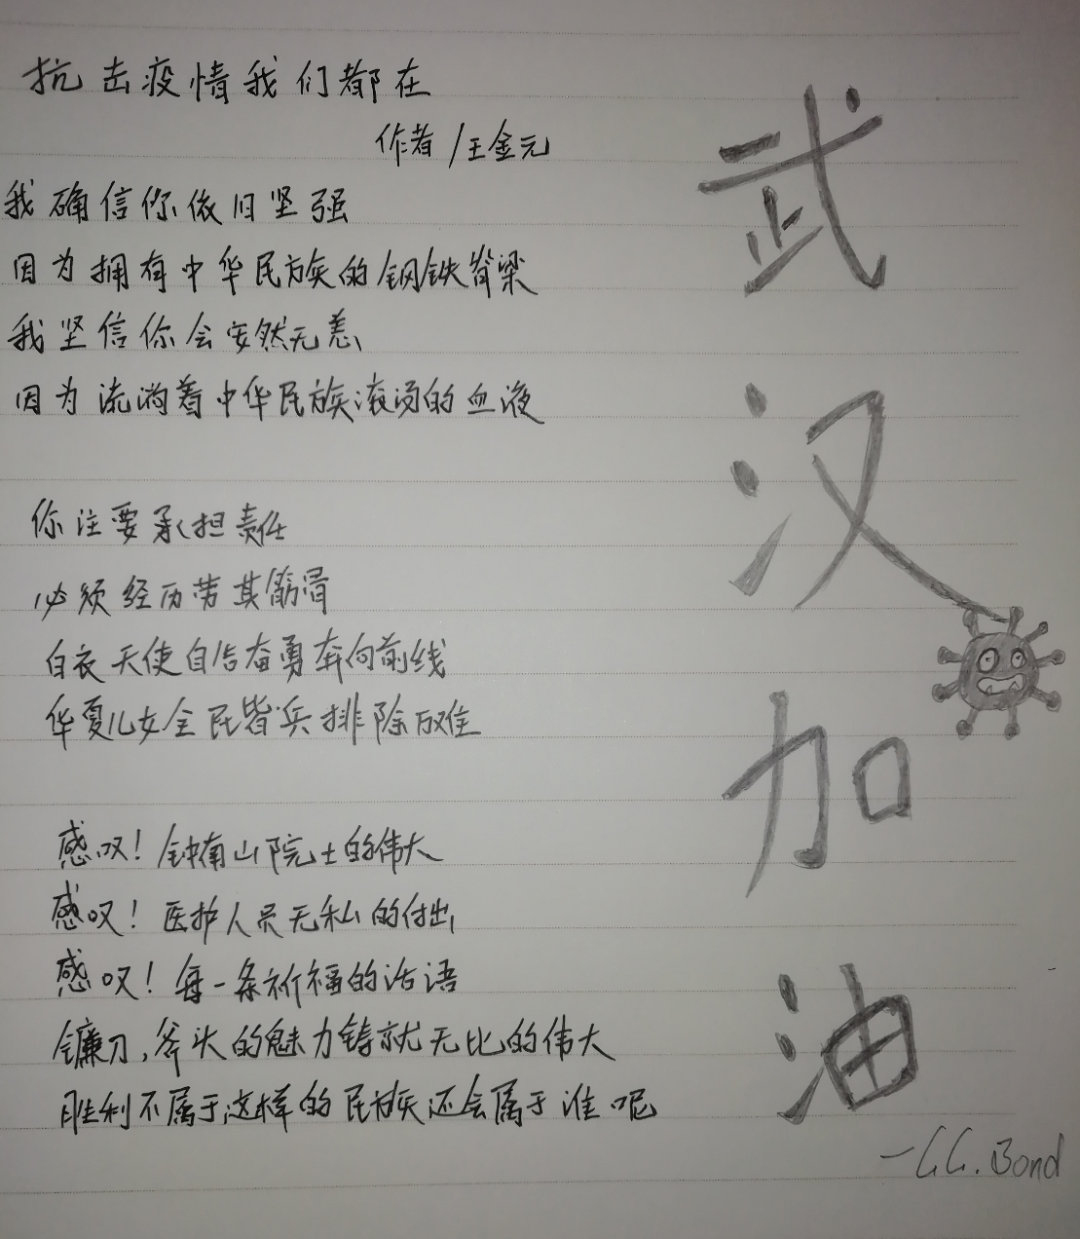 抗击疫情我们都在
作者/王金元
我确信你依旧坚强
因为拥有中华民族的钢铁脊梁
我坚信你会安然无恙
因为流淌着中华民族滚烫的血液
你注要承担责任
必须经历劳其筋骨
白衣天使自告奋勇奔向前线
华夏儿女全民皆兵排除万难
感叹!钟南山院士的伟大
感叹!医护人员无私的付出
感叹!每一条祈福的话语
镰刀,斧头的魅力铸就无比的伟大
胜利不属于这样的民族还会属于谁呢
武汉加油
—G.G.Bond